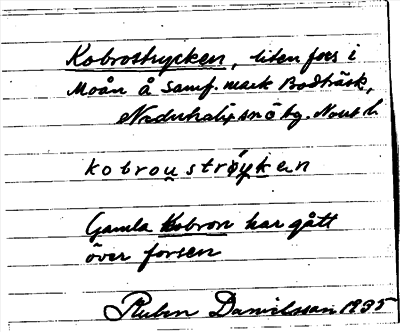 Kobrostrycken, liten fors i
Moån å samf. mark Bodträsk,
Nederkalix snö by. Nout b
kobrouströyken
Gamla Kobron har gått
över forsen
Ruben Danielsson 1935